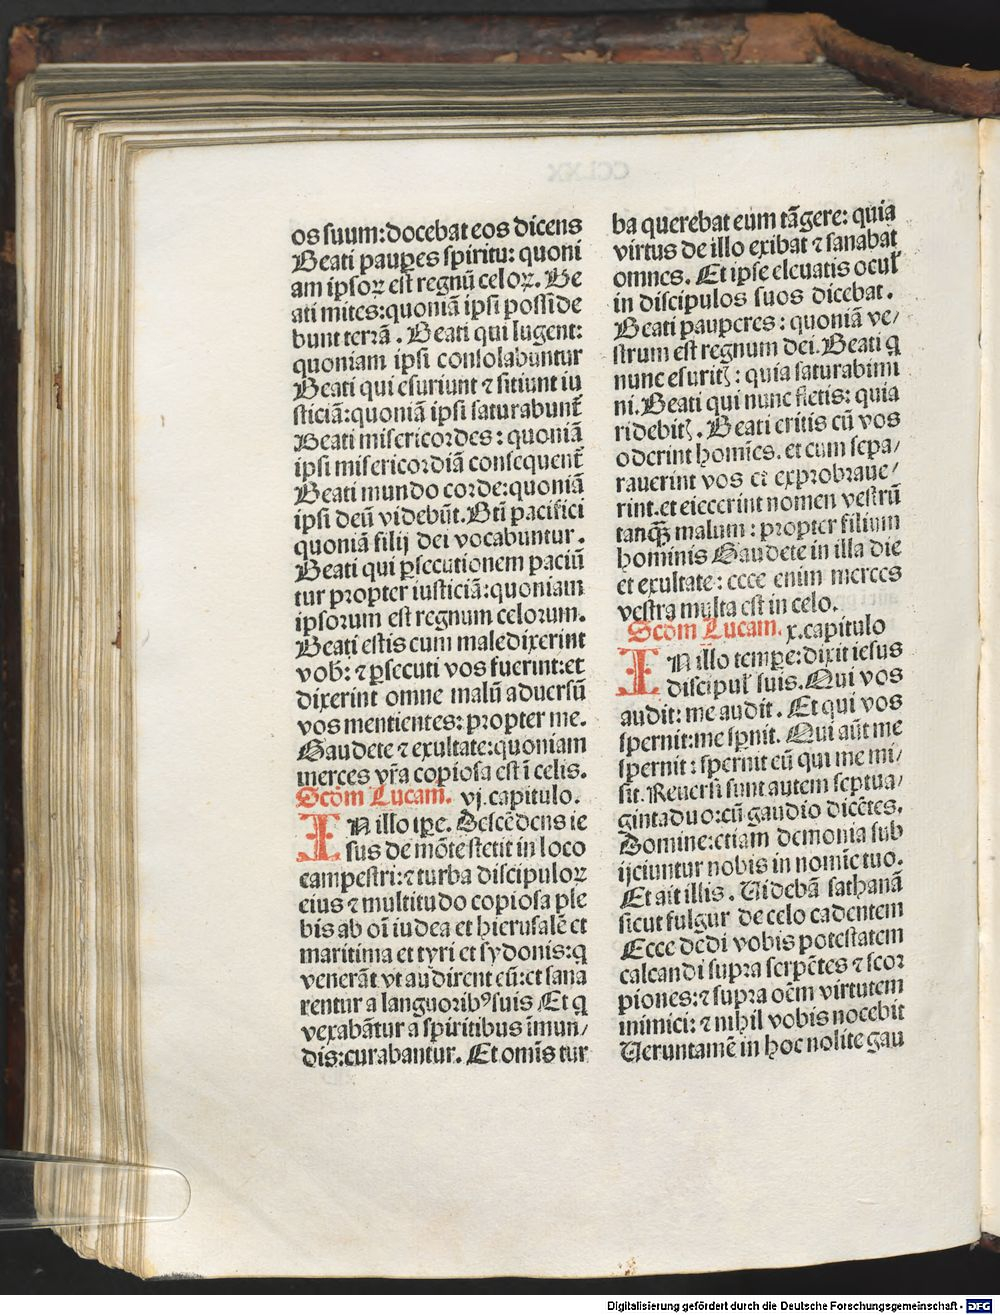 os suum: docebat eos dicens
Beati paup̲es spiritu: quoni
am ipsoꝝ est regnū celoꝝ. Be
ati mites: quoniā ipsi posside
bunt terrā. Beati qui lugent:
quoniam ipsi consolabuntur
Beati qui esuriunt ⁊ sitiunt iu
sticiā: quoniā ipsi saturabunt̄
Beati misericordes: quoniā
ipsi misericordiā consequent̄
Beati mundo corde: quoniā
ipsi deū videbūt. Bt̄i pacifici
quoniā filij dei vocabuntur.
Beati qui ꝑsecutionem paciū
tur propter iusticiā: quoniam
ipsorum est regnum celorum.
Beati estis cum maledixerint
vob̄: ⁊ ꝑsecuti vos fuerint: et
dixerint omne malū aduersū
vos mentientes: propter me.
Gaudete ⁊ exultate: quoniam
merces vr̄a copiosa est ī celis.
Scd̄m Lucam. vj. capitulo.
IN illo tꝑe. Descēdens ie
sus de mōte stetit in loco
campestri: ⁊ turba discipuloꝝ
eius ⁊ multitudo copiosa ple
bis ab oī iudea et hierusalē et
maritima et tyri et sydonis: q
venerāt vt audirent eū: et sana
rentur a languorib⁹ suis Et q
vexabātur a spiritibus īmun/
dis: curabantur. Et omīs tur
ba querebat eum tāgere: quia
virtus de illo exibat ⁊ sanabat
omnes. Et ipse eleuatis ocul̕
in discipulos suos dicebat.
Beati pauperes: quoniā ve/
strum est regnum dei. Beati q
nunc esuritꝭ: quia saturabimi
ni. Beati qui nunc fletis: quia
ridebitꝭ. Beati eritis cū vos
oderint homīes. et cum sepa/
rauerint vos et exprobraue/
rint. et eiecerint nomen vestrū
tanqꝫ malum: propter filium
hominis Gaudete in illa die
et exultate: ecce enim merces
vestra multa est in celo.
Scd̄m Lucam. x. capitulo
IN illo tempꝑe: dixit iesus
discipul̕ suis. Qui vos
audit: me audit. Et qui vos
spernit: me sꝑnit. Qui aūt me
spernit: spernit eū qui me mi/
sit. Reuersi sunt autem septua/
ginta duo: cū gaudio dicētes.
Domine: etiam demonia sub
ijciuntur nobis in nomīe tuo.
Et ait illis. Uidebā sathanā
sicut fulgur de celo cadentem
Ecce dedi vobis potestatem
calcandi supra serpētes ⁊ scor
piones: ⁊ supra oēm virtutem
inimici: ⁊ nihil vobis nocebit
Ueruntamē in hoc nolite gau
Digitalisierung gefördert durch die Deutsche Forschungsgemeinschaft - DFG